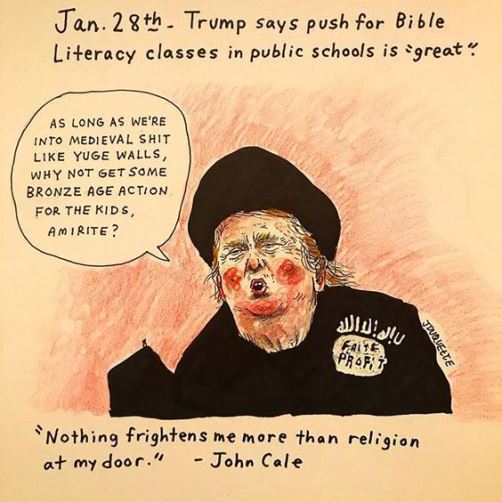 Jan. 28th - Trump says push for Bible
Literacy classes in public schools is "great".
AS LONG AS WE'RE
INTO MEDIEVAL SHIT
LIKE YUGE WALLS,
WHY NOT GET SOME
BRONZE AGE ACTION
FOR THE KIDS,
AMIRITE?
FALSE
PROFIT
"Nothing frightens me more than religion
at my door." - John Cale